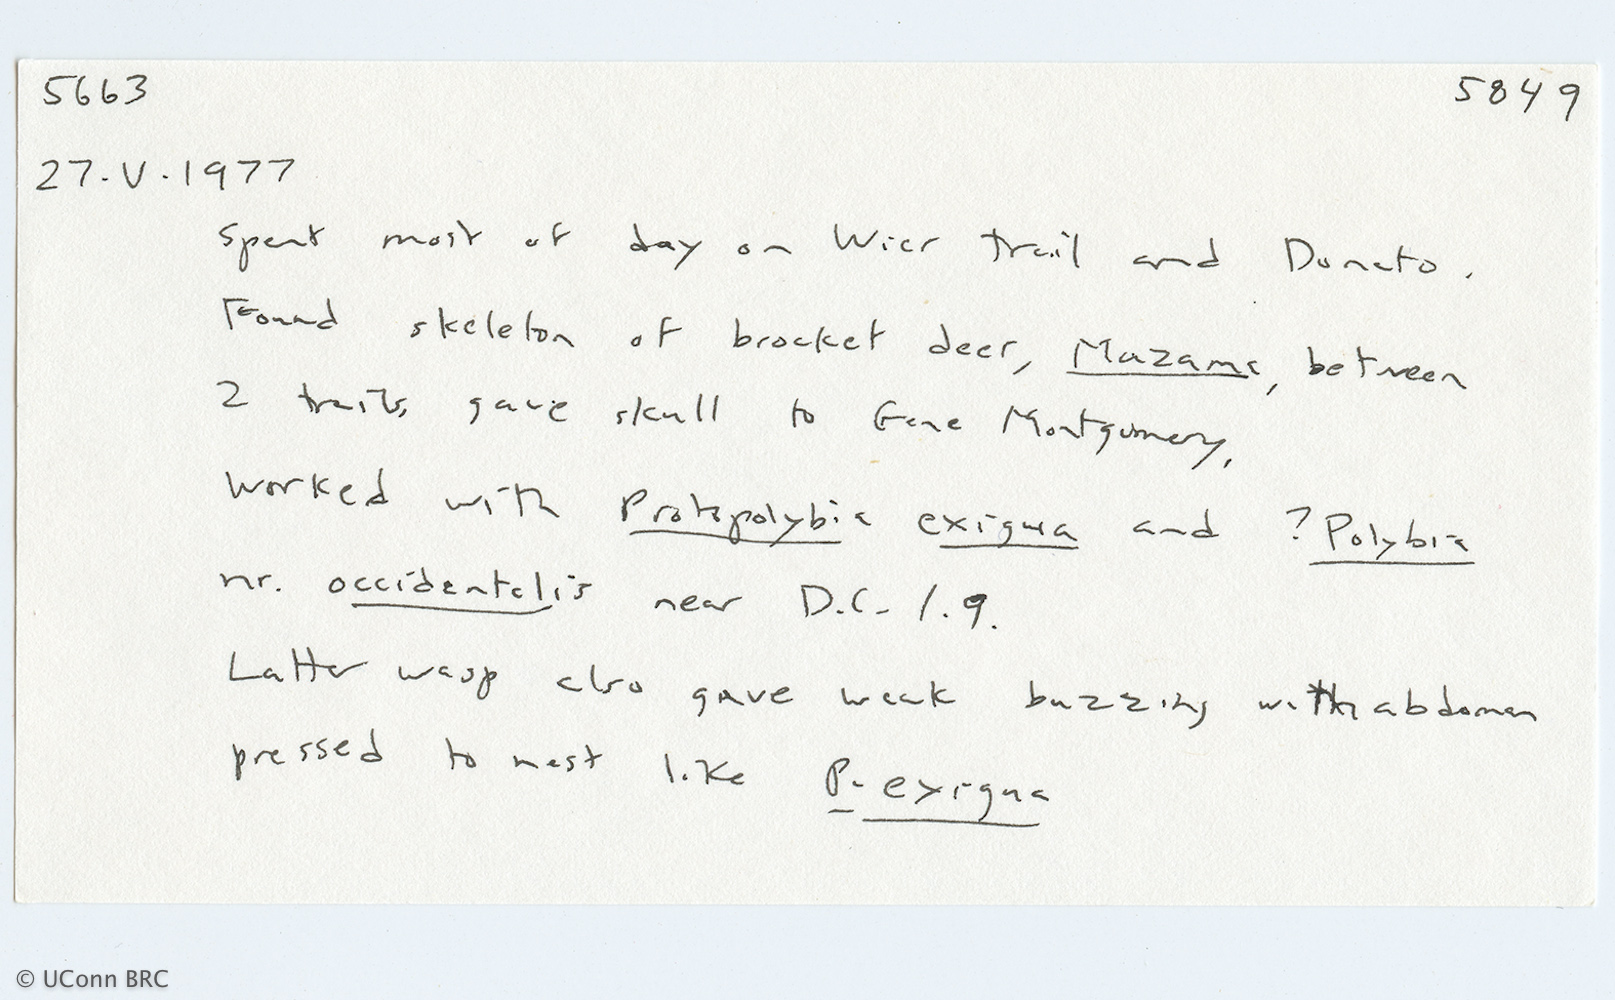 5663 5849
27.V.1977
Spent most of day on Wier trail and Donato.
Found skeleton of brocket deer, Mazama, between
2 trails, gave skull to Gene Montgomery.
Worked with Protopolybia exigua and ? Polybia
nr. occidentalis near D.C. 1.9.
Latter wasp also gave weak buzzing with abdomen
pressed to nest like P. exigua
© UConn BRC